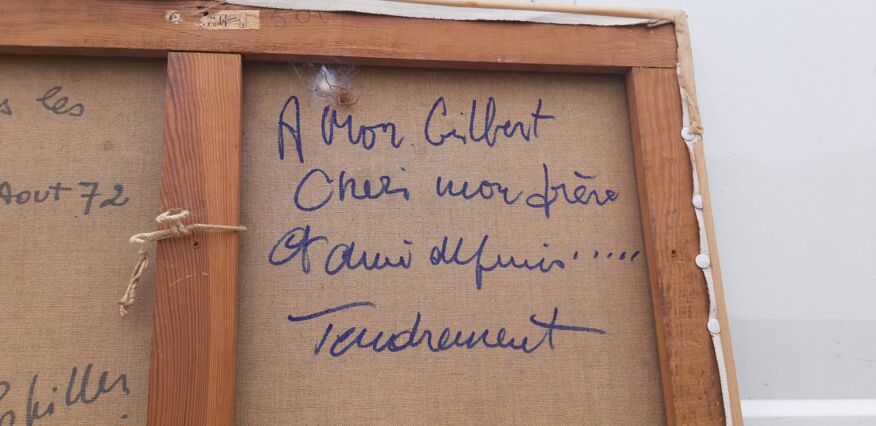 501
s les
Aout 72
A Mon Gilbert
Cheri mon frère
et ami depuis......
Tendrement